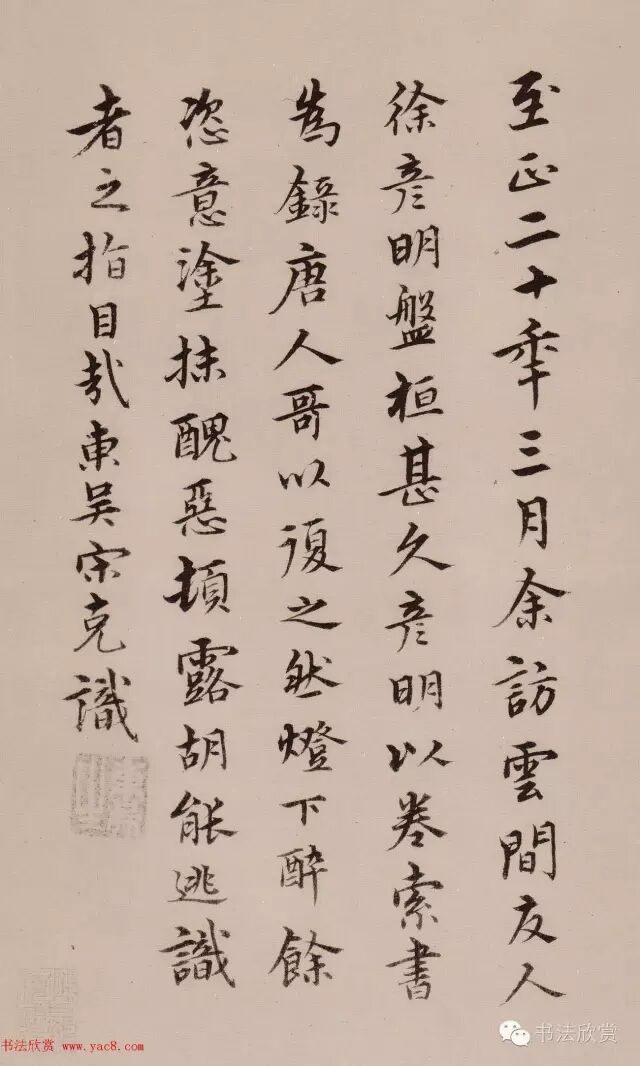 至正二十年三月余訪雲間友人
徐彦明盤桓甚久彦明以卷索書
為錄唐人哥以復之然燈下醉餘
恣意塗抹醜惡頓露胡能逃識
者之指目哉東吳宋克識
书法欣赏 www.yac8.com
书法欣赏